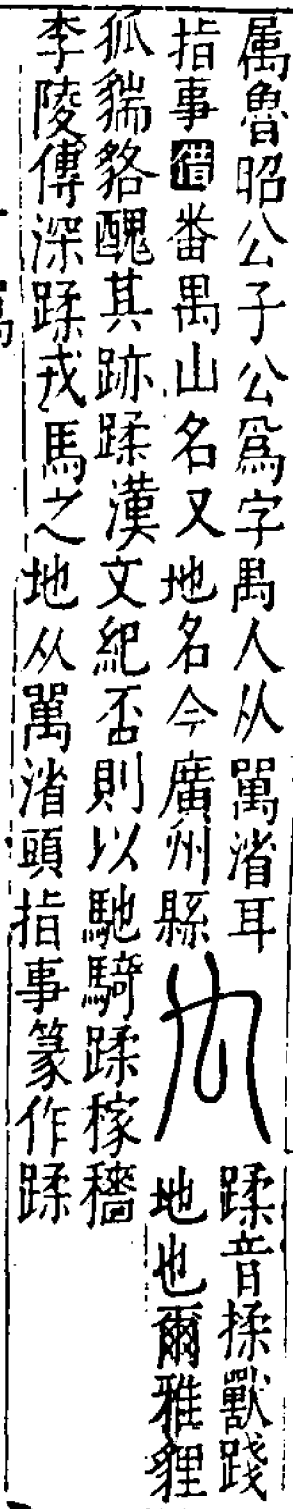 属魯昭公子公爲字禺人从萬渻耳
指事借番禺山名又地名今廣州縣
禸
蹂音揉獸踐
地也爾雅貍
狐貒貉醜其跡蹂漢文紀否則以馳騎蹂稼穡
李陵傳深蹂戎馬之地从萬渻頭指事篆作蹂